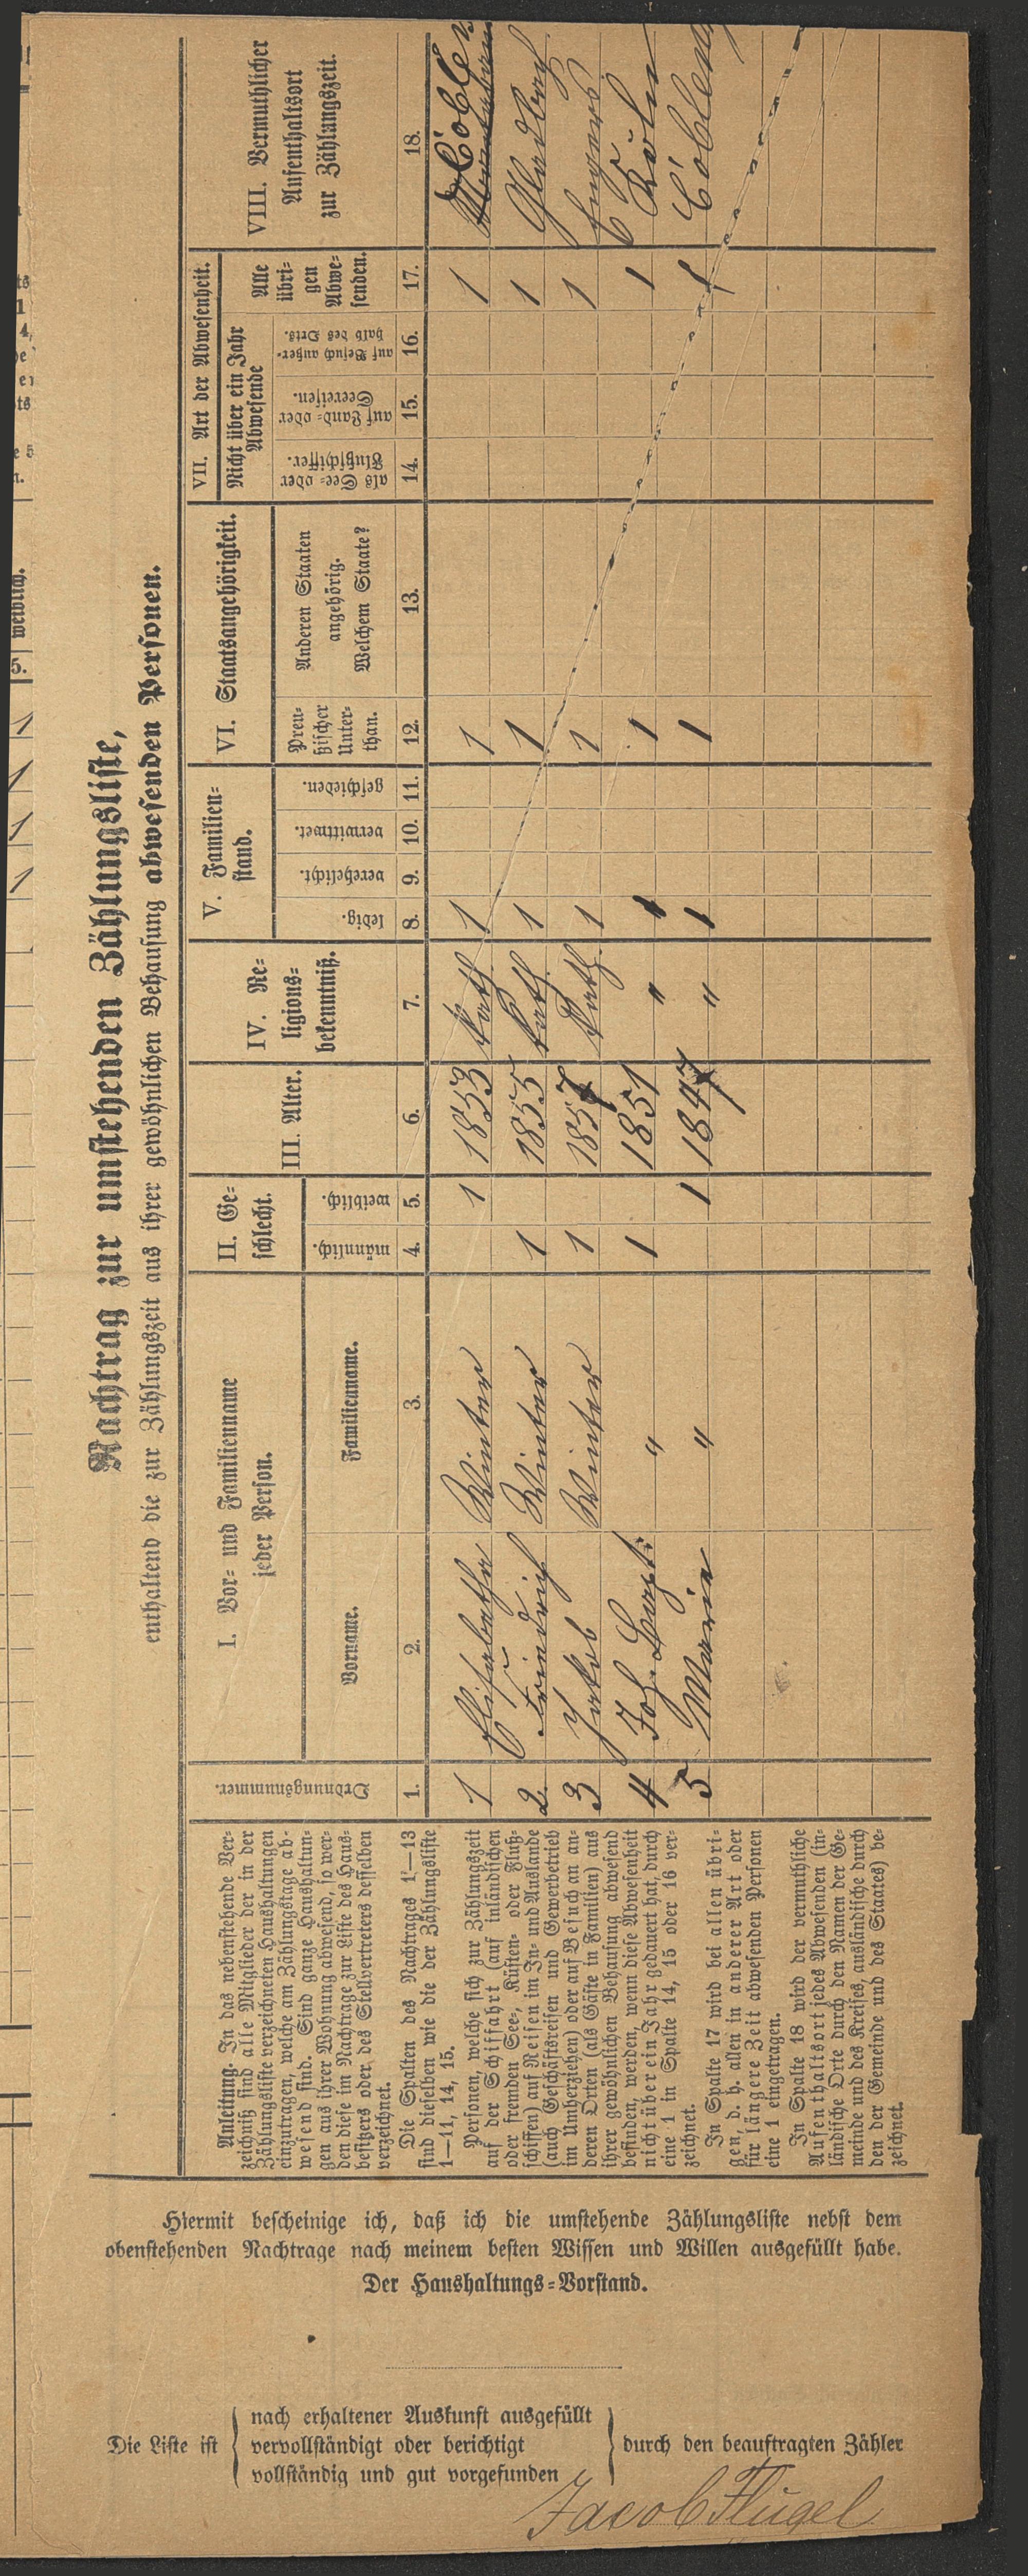 Nachtrag zur umstehenden Zählungsliste,
enthaltend die zur Zählungszeit aus ihrer gewöhnlichen Behausung abwesenden Personen.
Anleitung. In das nebenstehende Ver-
zeichniß sind alle Mitglieder der in der
Zählungsliste verzeichneten Haushaltungen
einzutragen, welche am Zählungstage ab-
wesend sind. Sind ganze Haushaltun-
gen aus ihrer Wohnung abwesend, so wer-
den diese im Nachtrage zur Liste des Haus-
besitzers oder des Stellvertreters desselben
verzeichnet.
Die Spalten des Nachtrages 1—13
sind dieselben wie die der Zählungsliste
1—11, 14, 15.
Personen, welche sich zur Zählungszeit
auf der Schiffahrt (auf inländischen
oder fremden See-, Küsten- oder Fluß-
schiffen) auf Reisen im In- und Auslande
(auch Geschäftsreisen und Gewerbetrieb
im Umherziehen) oder auf Besuch an an-
deren Orten (als Gäste in Familien) aus
ihrer gewöhnlichen Behausung abwesend
befinden, werden, wenn diese Abwesenheit
nicht über ein Jahr gedauert hat, durch
eine 1 in Spalte 14, 15 oder 16 ver-
zeichnet.
In Spalte 17 wird bei allen übri-
gen, d. h. allen in anderer Art oder
für längere Zeit abwesenden Personen
eine 1 eingetragen.
In Spalte 18 wird der vermuthliche
Aufenthaltsort jedes Abwesenden (in-
ländische Orte durch den Namen der Ge-
meinde und des Kreises, ausländische durch
den der Gemeinde und des Staates) be-
zeichnet.
Ordnungsnummer.
I. Vor- und Familienname
jeder Person.
Vorname.
Familienname.
II. Ge-
schlecht.
männlich.
weiblich.
III. Alter.
IV. Re-
ligions-
bekenntniß.
V. Familien-
stand.
ledig.
verehelicht.
verwittwet.
geschieden.
VI. Staatsangehörigkeit.
Preu-
ßischer
Unter-
than.
Anderen Staaten
angehörig.
Welchem Staate?
VII. Art der Abwesenheit.
Nicht über ein Jahr
Abwesende
als See- oder
Flußschiffer.
auf Land- oder
Seereisen.
auf Besuch außer-
halb des Orts.
Alle
übri-
gen
Abwe-
senden.
VIII. Vermuthlicher
Aufenthaltsort
zur Zählungszeit.
1. 2. 3. 4. 5. 6. 7. 8. 9. 10. 11. 12. 13. 14. 15. 16. 17. 18.
1 Elisabetha Winter 1 1853 kath 1 1 1
2 Friedrich Winter 1 1855 kath 1 1 1 Gladbach
3 Jakob Winter 1 1857 Kath 1 1 1 Engers
4 Joh. " 1 1851 " 1 1 1 Köln
5 Maria " 1 1847 " 1 1 1 Coblenz
Hiermit bescheinige ich, daß ich die umstehende Zählungsliste nebst dem
obenstehenden Nachtrage nach meinem besten Wissen und Willen ausgefüllt habe.
Der Haushaltungs-Vorstand.
Die Liste ist
nach erhaltener Auskunft ausgefüllt
vervollständigt oder berichtigt
vollständig und gut vorgefunden
durch den beauftragten Zähler
Jacob Flügel
weiblich.
5.
1
1
1
1